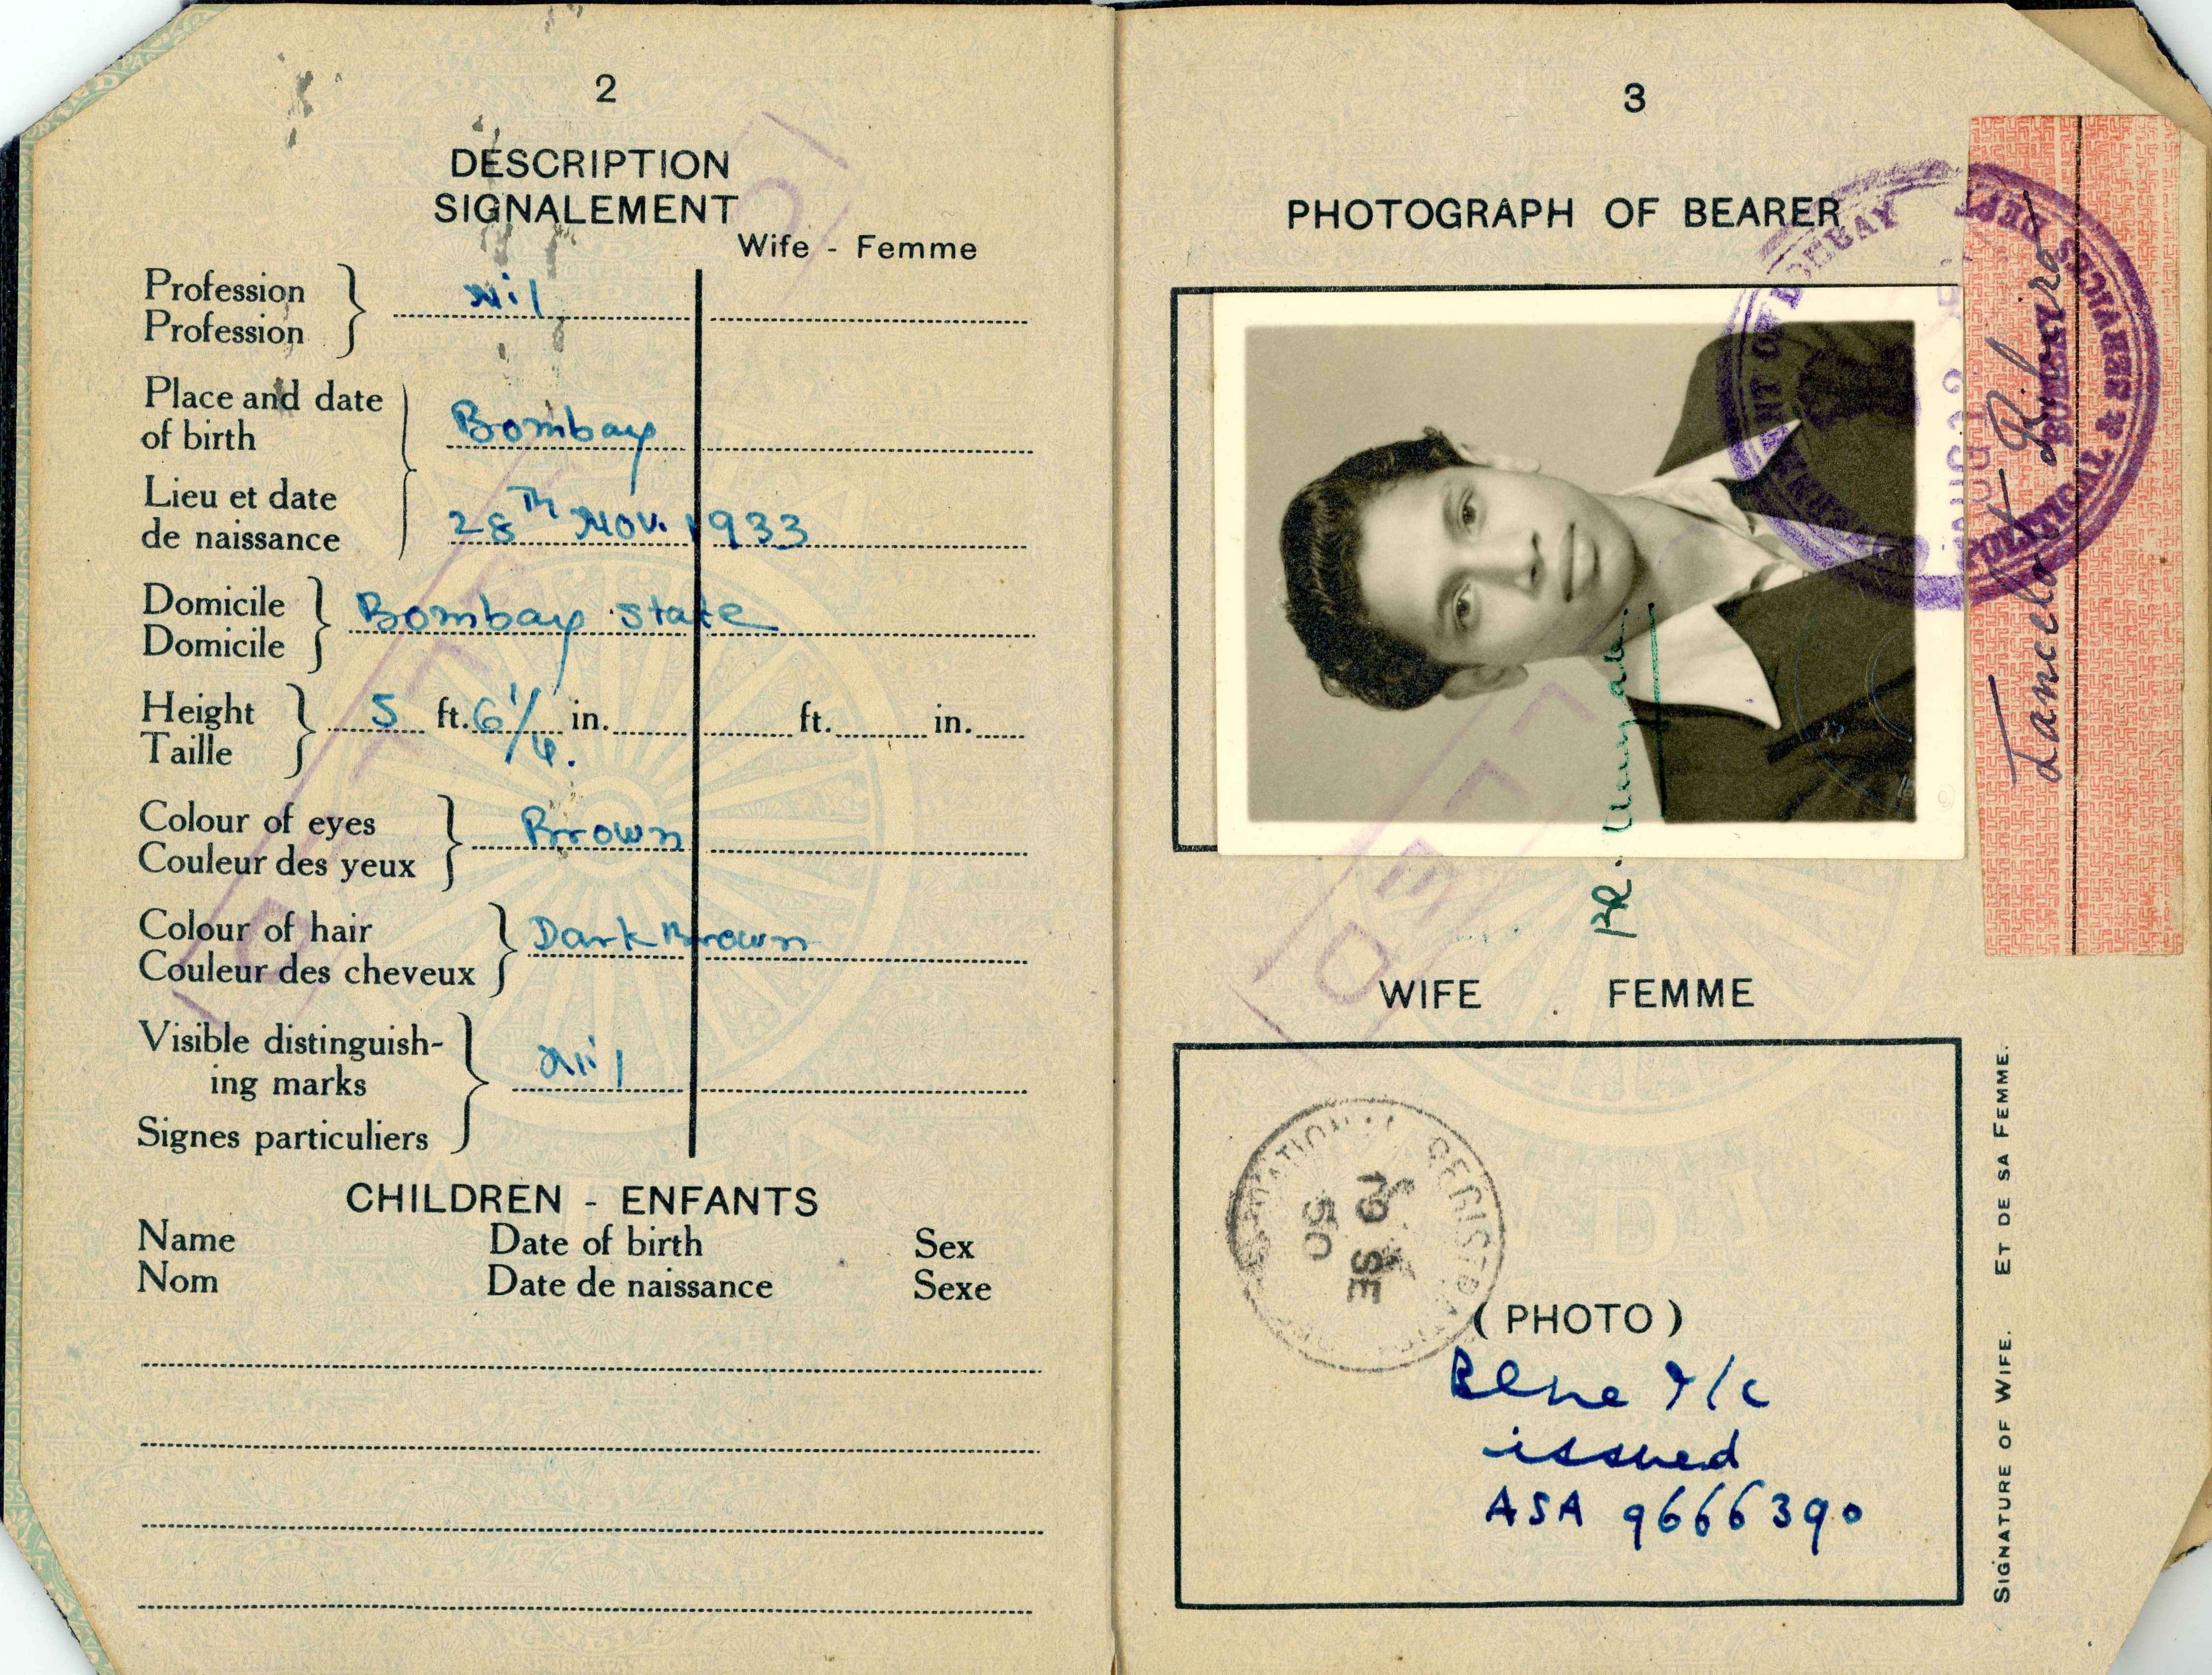 2
DESCRIPTION
SIGNALEMENT
Wife - Femme
Profession
Profession
Nil
Place and date
of birth
Bombay
Lieu et date
de naissance
28TH Nov. 1933
Domicile
Domicile
Bombay State
Height
Taille
5 ft. 6 1/4. in. ft. in.
Colour of eyes
Couleur des yeux
Brown
Colour of hair
Couleur des cheveux
Dark Brown
Visible distinguish-
ing marks
Signes particuliers
Nil
CHILDREN - ENFANTS
Name Date of birth Sex
Nom Date de naissance Sexe
3
PHOTOGRAPH OF BEARER
Lancelot Ribeiro
POLITICAL & SERVICES DEPT
BOMBAY
WIFE FEMME
19 SE
50
(PHOTO)
issued
ASA 9666390
SIGNATURE OF WIFE. ET DE SA FEMME.